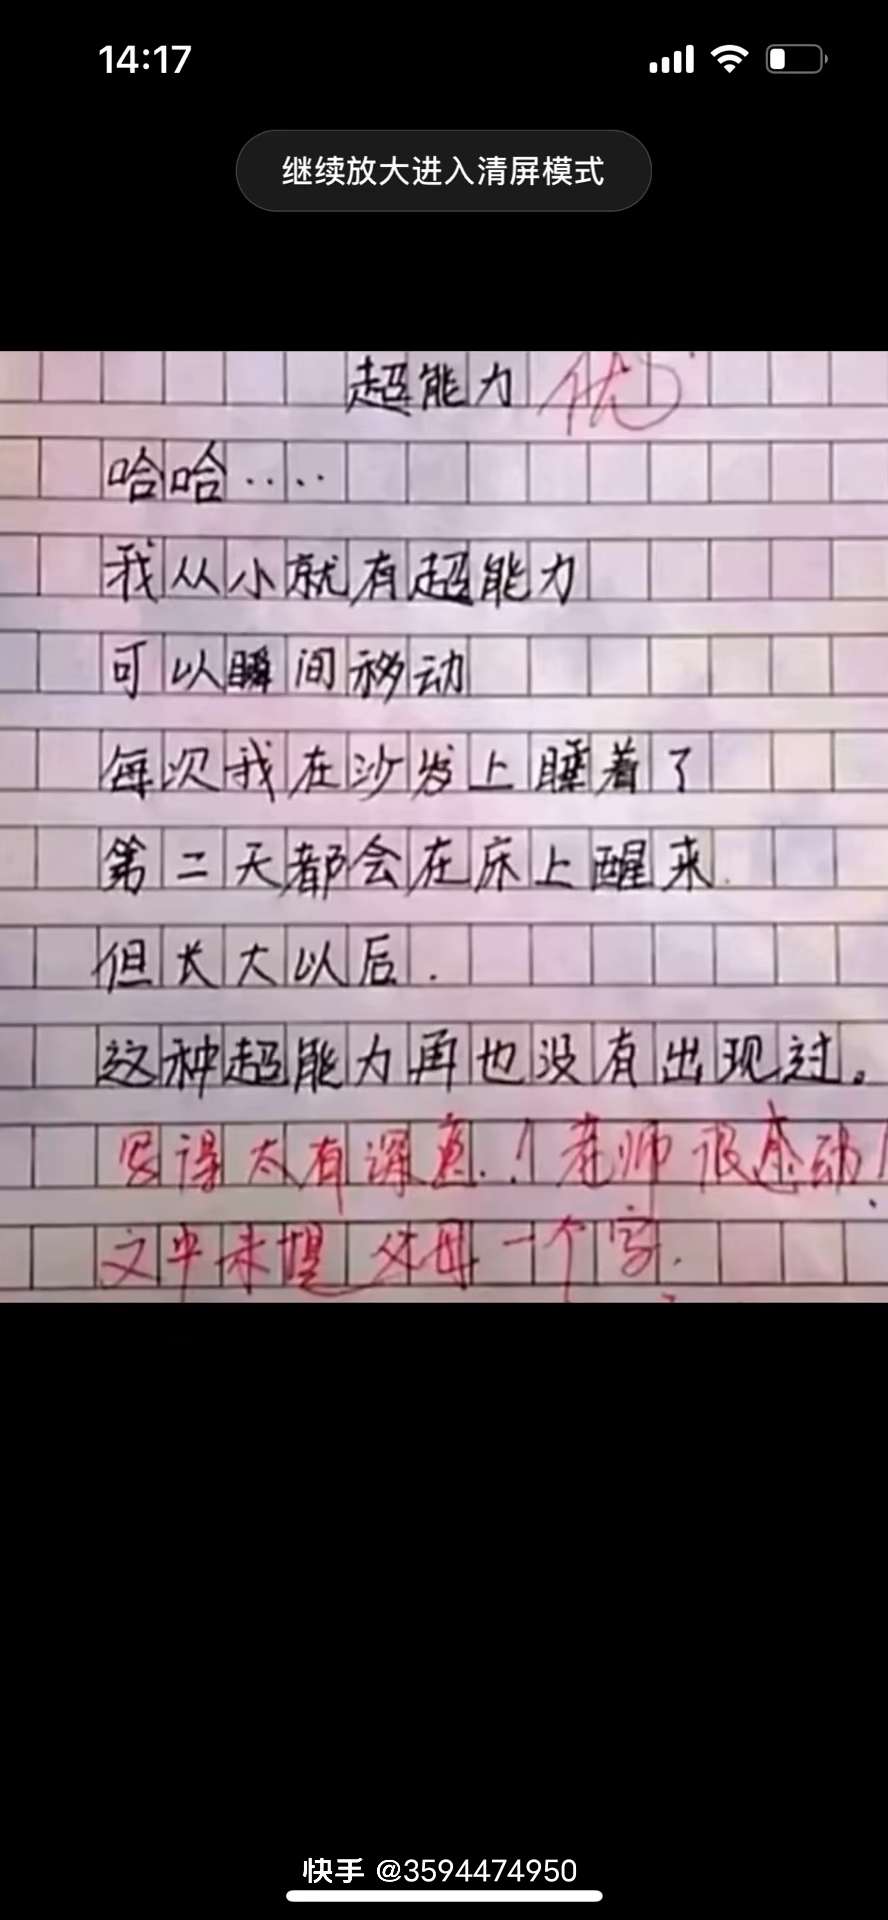 14:17
继续放大进入清屏模式
超能力 优
哈哈....
我从小就有超能力
可以瞬间移动
每次我在沙发上睡着了
第二天都会在床上醒来.
但长大以后.
这种超能力再也没有出现过。
写得太有深意.!老师很感动!
文中未提父母一个字.
快手 @3594474950